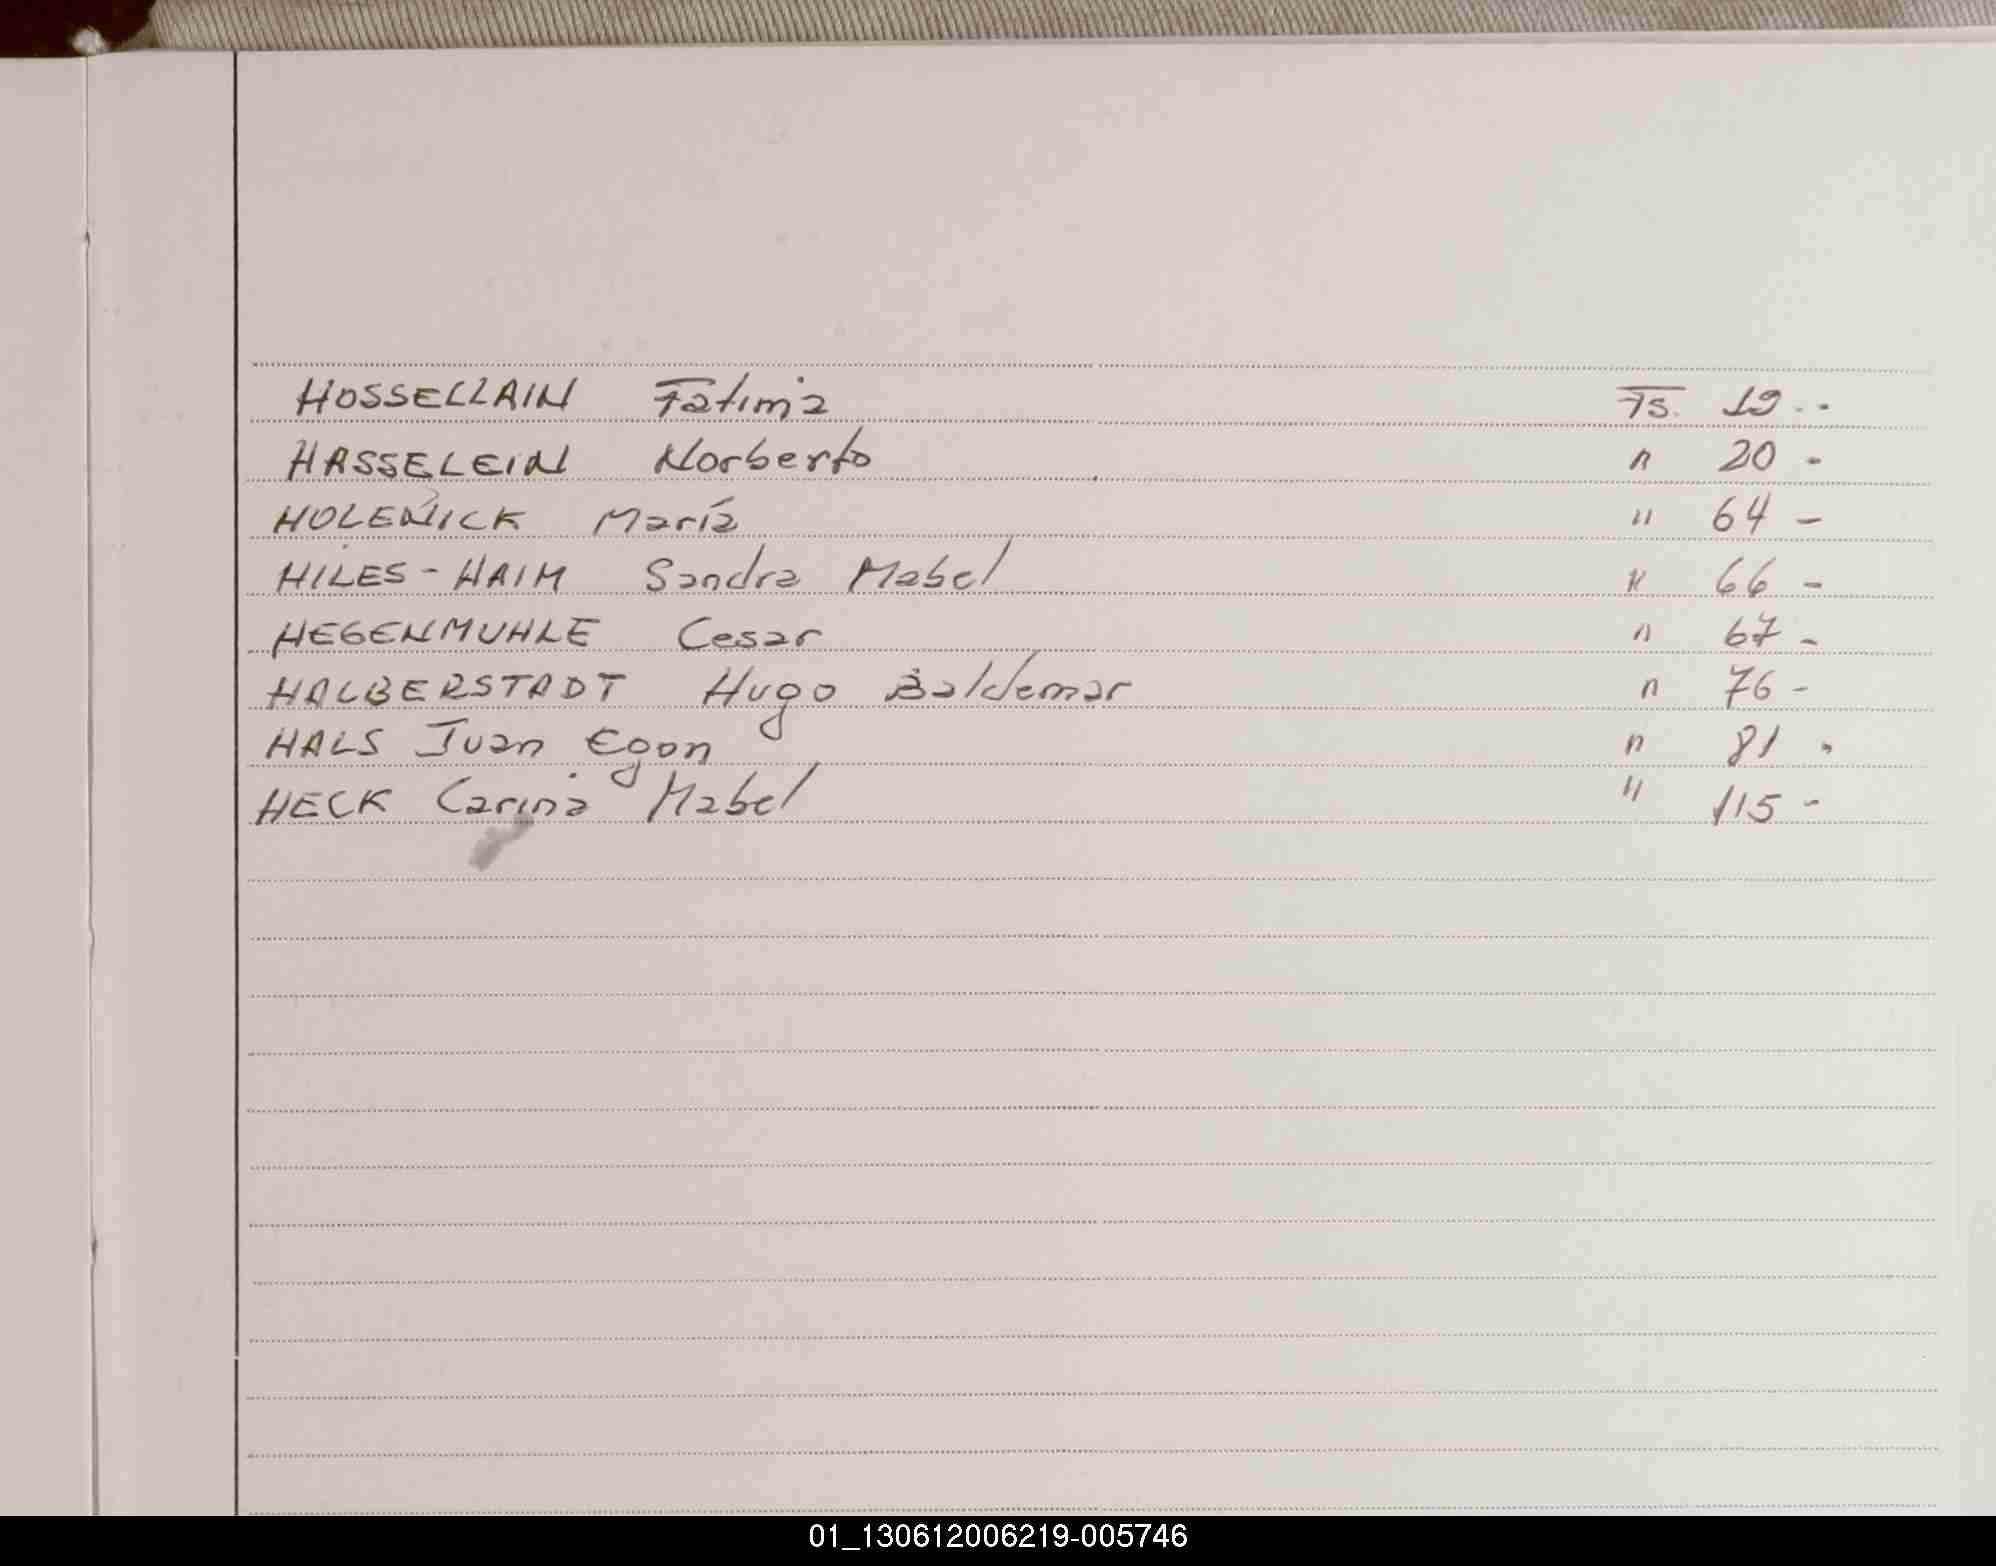 HOSSELLAIN Fatima Fs. 19 - -
HASSELEIN Norberto " 20 -
HOLENICK María " 64 -
HILES - HAIM Sandra Mabel " 66 -
HEGENMUHLE Cesar " 67 -
HALBERSTADT Hugo Baldemar " 76 -
HALS Juan Egon " 81 -
HECK Carina Mabel " 115 -
01_130612006219-005746